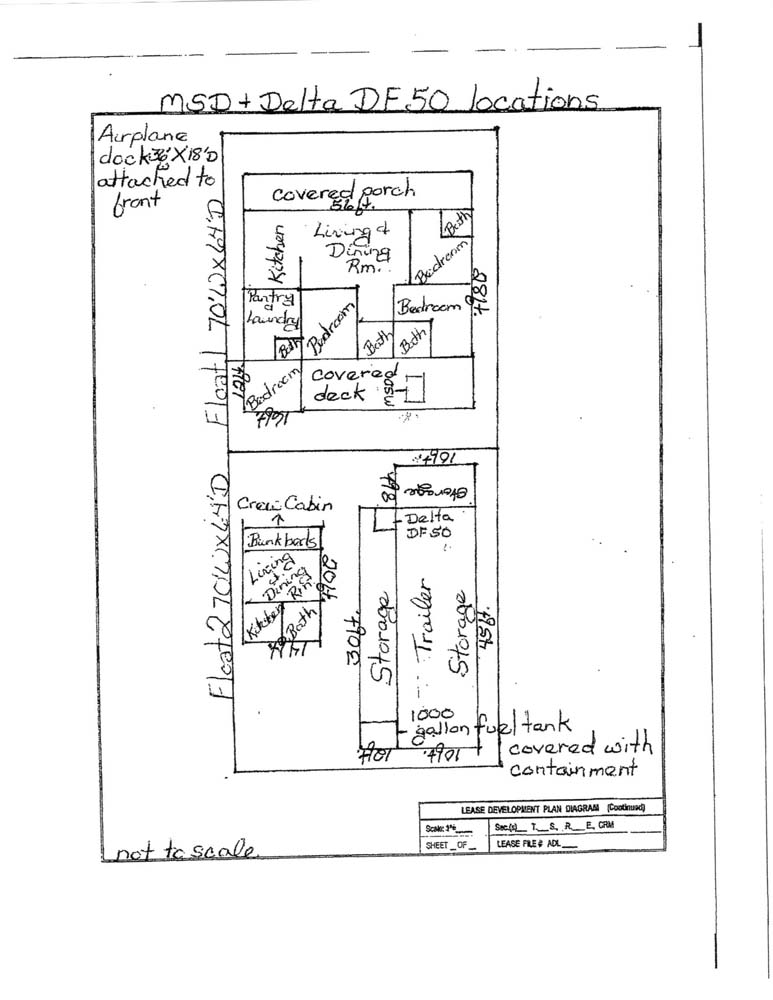 MSD + Delta DF50 locations
Airplane
dock 36'W X 18'D
attached to
front
Float 1 70'W X 64'D
covered porch
56ft.
Kitchen
Living &
Dining
Rm.
Bath
Bedroom
28ft.
Pantry
&
Laundry
Bath
Bedroom
Bedroom
Bath
Bath
12ft.
Bedroom
16ft.
covered
deck
MSD
Float 2 70'W X 64'D
Crew Cabin
Bunk beds
Living
&
Dining
Rm.
20ft.
Kitchen
Bath
14ft.
16ft.
8ft.
Storage
Delta
DF50
30ft.
Storage
Trailer
Storage
45ft.
1000
gallon fuel tank
covered with
containment
10ft.
16ft.
not to scale.
LEASE DEVELOPMENT PLAN DIAGRAM (Continued)
Scale: 1"=____
Sec.(s)__ T.__S., R.__E., CRM
SHEET _OF_
LEASE FILE# ADL___